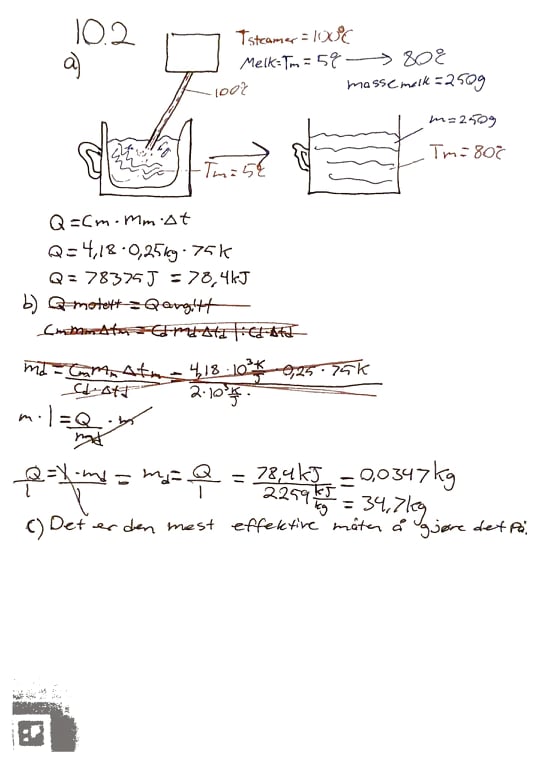 10.2
a)
Tsteamer = 100°C
Melk = Tm = 5°C → 80°C
masse melk = 250g
100°C
m = 250g
Tm = 5°C
Tm = 80°C
Q = Cm · Mm · Δt
Q = 4,18 · 0,25kg · 75K
Q = 78375J = 78,4kJ
b) Q motatt = Q avgitt
Cm mm Δtm = Cd md Δtd | : Cd · Δtd
md = Cm Mm Δtm / Cd · Δtd = 4,18 · 10³ K/J · 0,25 · 75K / 2 · 10³ K/J ·
m · l = Q/md · m
Q/l = l · md/l = md = Q/l = 78,4kJ / 2259 kJ/kg = 0,0347kg
= 34,7kg
c) Det er den mest effektive måten å gjøre det på.